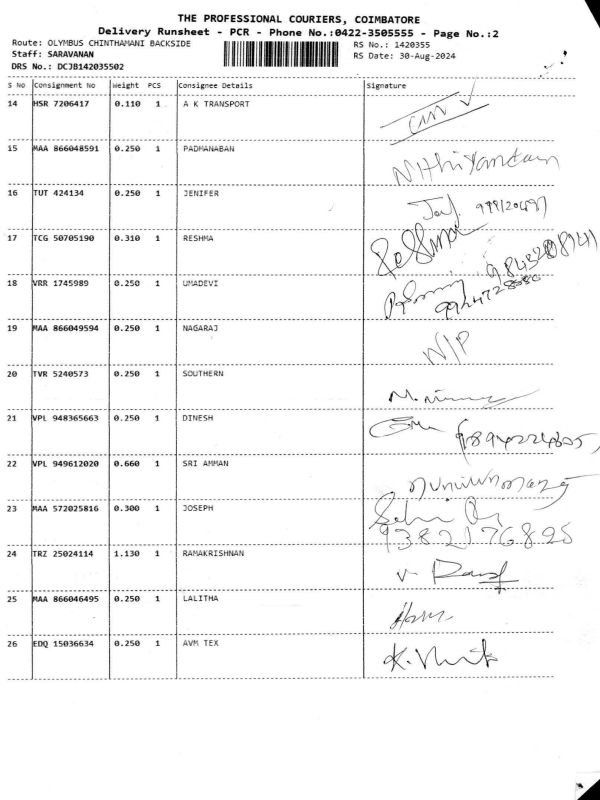 THE PROFESSIONAL COURIERS, COIMBATORE
Delivery Runsheet - PCR - Phone No.:0422-3505555 - Page No.:2
Route: OLYMBUS CHINTHAMANI BACKSIDE RS No.: 1420355
Staff: SARAVANAN RS Date: 30-Aug-2024
DRS No.: DCJB142035502
S No Consignment No Weight PCS Consignee Details Signature
14 HSR 7206417 0.110 1 A K TRANSPORT
15 MAA 866048591 0.250 1 PADMANABAN
16 TUT 424134 0.250 1 JENIFER
17 TCG 50705190 0.310 1 RESHMA
18 VRR 1745989 0.250 1 UMADEVI
19 MAA 866049594 0.250 1 NAGARAJ N/P
20 TVR 5240573 0.250 1 SOUTHERN
21 VPL 948365663 0.250 1 DINESH
22 VPL 949612020 0.660 1 SRI AMMAN
23 MAA 572025816 0.300 1 JOSEPH
9382176825
24 TRZ 25024114 1.130 1 RAMAKRISHNAN
25 MAA 866046495 0.250 1 LALITHA
26 EDQ 15036634 0.250 1 AVM TEX